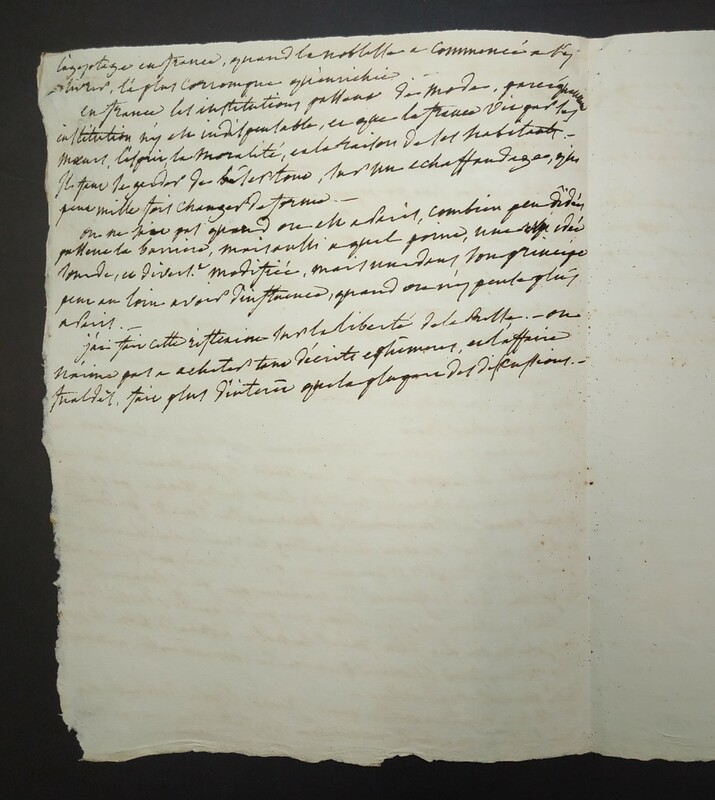 l'agiotage en france, quand la noblesse a commencé a s'y
livrer, l'a plus corrompue qu'enrichie. —
en france les institutions passent de mode, parcequ'aucune
institution n'y est indispensable, et que la france vit par les
mœurs, l'esprit, la moralité, et la raison de ses habitants. —
il faut se garder de bâtir tout, sur un echaffaudage, qui
peut mille fois changer de forme. —
on ne sait pas quand on est a Paris, combien peu d'idées
passent la barriere, mais aussi a quel point, une idée
ronde, et divert.t modifiée, mais une dans son principe
peut au loin avoir d'influence, quand on n'y pense plus
a Paris. —
j'ai fait cette réflexion sur la liberté de la presse. — on
n'aime pas a acheter tant d'écrits ephémeres, et l'affaire
fualdès, fait plus d'interêt que la plupart des discussions. —